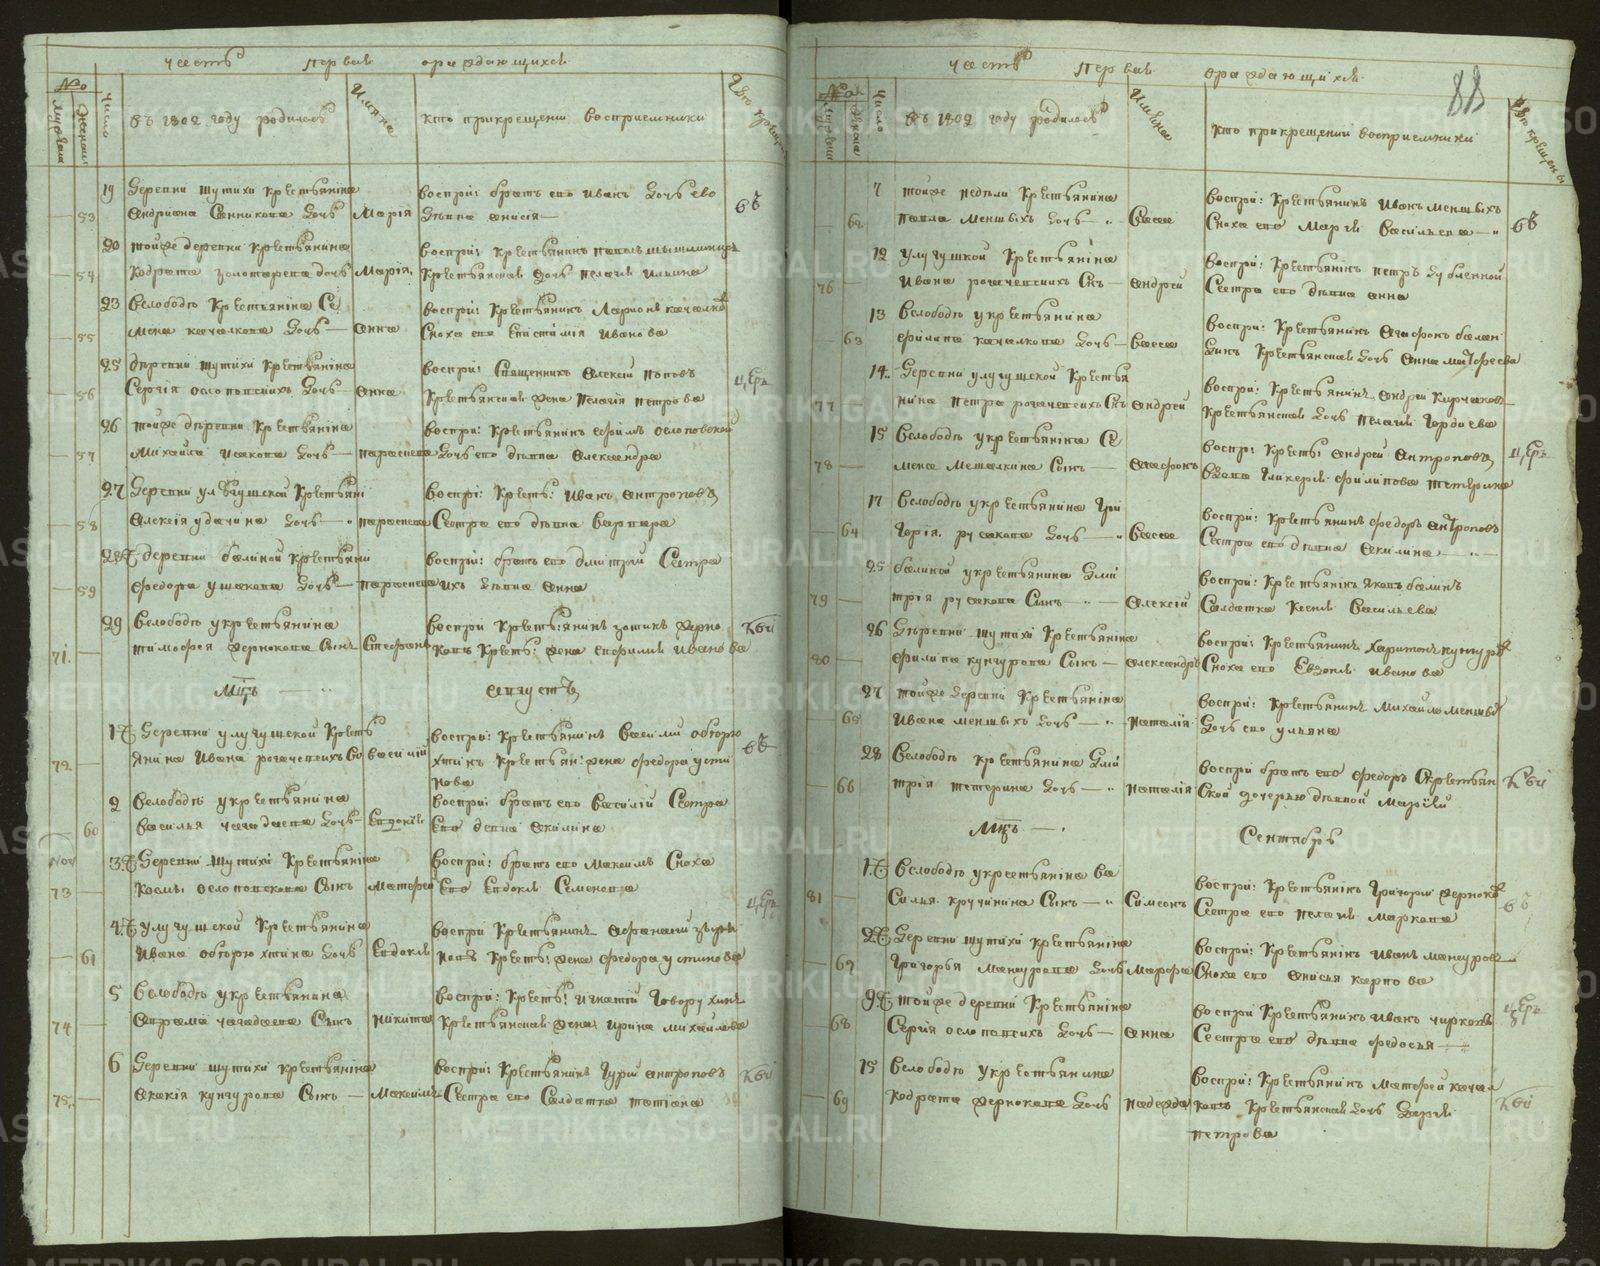 часть первая ораждающихся
№
мужеска
женска
число
въ 1802 году родилось
Имяна
кто прикрещении восприемники
19 Деревни шутихи крестьянина
53 Андриана Санникова дочь Мария
воспри: братъ его Иванъ дочь ево
девка анисия
20 тойже деревни крестьянина
54 кодрата золотарева дочь Мария
воспри: крестьянинъ
крестьянская дочь пелагия ильина
23 вслободѣ крестьянина Се
55 мена качалкова дочь анна
воспри: крестьянинъ Ларионъ качалко
Сноха его Иванова
25 деревни шутихи крестьянина
56 Сергия ослоповскихъ дочь анна
воспри: Священникъ Алексѣй поповъ
крестьянская жена пелагия петрова
26 тойже деревни крестьянина
57 михаила исакова дочь параскева
воспри: крестьянинъ ефимъ ослоповской
дочь его девка Александра
27 Деревни улугушской крестьяни
58 Алексия удачина дочь параскева
воспри: кресть: Иванъ Антроповъ
Сестра его девка варвара
деревни балиной крестьяни
59 федора ушакова дочь параскева
воспри: братъ его дмитрий Сестра
ихъ девка анна
29 вслободѣ укрестьянина
71 тимофея чернокова сынъ Стефанъ
воспри кресть:янинъ зотикъ черно
ковъ кресть: жена евфимия иванова
Мцъ августъ
1 Деревни улугушской кресть
72 янина Ивана рогачевскихъ Сы василий
воспри: крестьянинъ василий обгорю
хтинъ крестьян: жена федора усти
нова
2 вслободѣ укрестьянина
60 василья чагадаева дочь Евдокия
воспри: братъ его василий Сестра
его девка акилина
3 Деревни шутихи крестьянина
73 козмы ослоповскова сынъ матфей
воспри: братъ его максимъ Сноха
его Евдокия Семенова
4 улугушской крестьянина
61 Ивана обгорюхтина дочь Евдокия
воспри крестьянинъ афанасий зыря
новъ кресть: жена федора устинова
5 вслободѣ укрестьянина
74 чагадаева сынъ никита
воспри: кресть: игнатий говорухинъ
крестьянская жена ирина михайлова
6 Деревни шутихи крестьянина
75 акакия кунгурова сынъ максимъ
воспри: крестьянинъ гурий антроповъ
Сестра его Салдатка татиана
88
часть первая ораждающихся
число
въ 1802 году родилось
Имяна
кто прикрещении восприемники
7 тойже недѣли крестьянина
62 павла меншыхъ дочь васса
воспри: крестьянинъ Иванъ меншыхъ
Сноха его Мария васильева
12 улугушкой крестьянина
76 Ивана рогачевскихъ Сынъ андрей
воспри: крестьянинъ петръ
Сестра его девка анна
13 вслободѣ укрестьянина
63 филипа качалкова дочь васса
воспри: крестьянинъ Агафонъ балан
динъ крестьянская дочь анна матфеева
14 Деревни улугушской крестья
77 нина петра рогачевскихъ Сынъ андрей
воспри: крестьянинъ андрей
крестьянская дочь пелагия гордиева
15 вслободѣ укрестьянина Се
78 мена металкина Сынъ Агафонъ
воспри: кресть: андрей антроповъ
вдова гликерия филипова тетерина
17 вслободѣ укрестьянина гри
64 гория русакова дочь васса
воспри: крестьянинъ федоръ антроповъ
Сестра его девка акилина
25 балиной укрестьянина дми
79 трия русакова Сынъ Алексѣй
воспри: крестьянинъ яковъ балинъ
Салдатка Ксения васильева
26 Деревни шутихи крестьянина
80 филипа кунгурова Сынъ александръ
воспри: крестьянинъ харитонъ кунгуро
Сноха его Евдокия иванова
27 тойже деревни крестьянина
65 Ивана меншыхъ дочь наталия
воспри: крестьянинъ михайло меншы
дочь его ульяна
28 вслободѣ крестьянина дми
66 трия тетерина дочь наталия
воспри братъ его федоръ скрестьян
ской дочерью девкой марией
Мцъ Сентябрь
1 вслободѣ укрестьянина ва
81 силья кручинина Сынъ Симеонъ
воспри: крестьянинъ григорий черноко
Сестра его пелагия маркова
2 Деревни шутихи крестьянина
67 григорья мансурова дочь марфа
воспри: крестьянинъ Иванъ мансуровъ
Сноха его анисья карпова
9 тойже деревни крестьянина
68 Сергия ослоповскихъ дочь анна
воспри крестьянинъ Иванъ чирковъ
Сестра его девка федосья
15 вслободѣ укрестьянина
69 кодрата чернокова дочь надежда
воспри: крестьянинъ матфей качал
ковъ крестьянская дочь дария
петрова